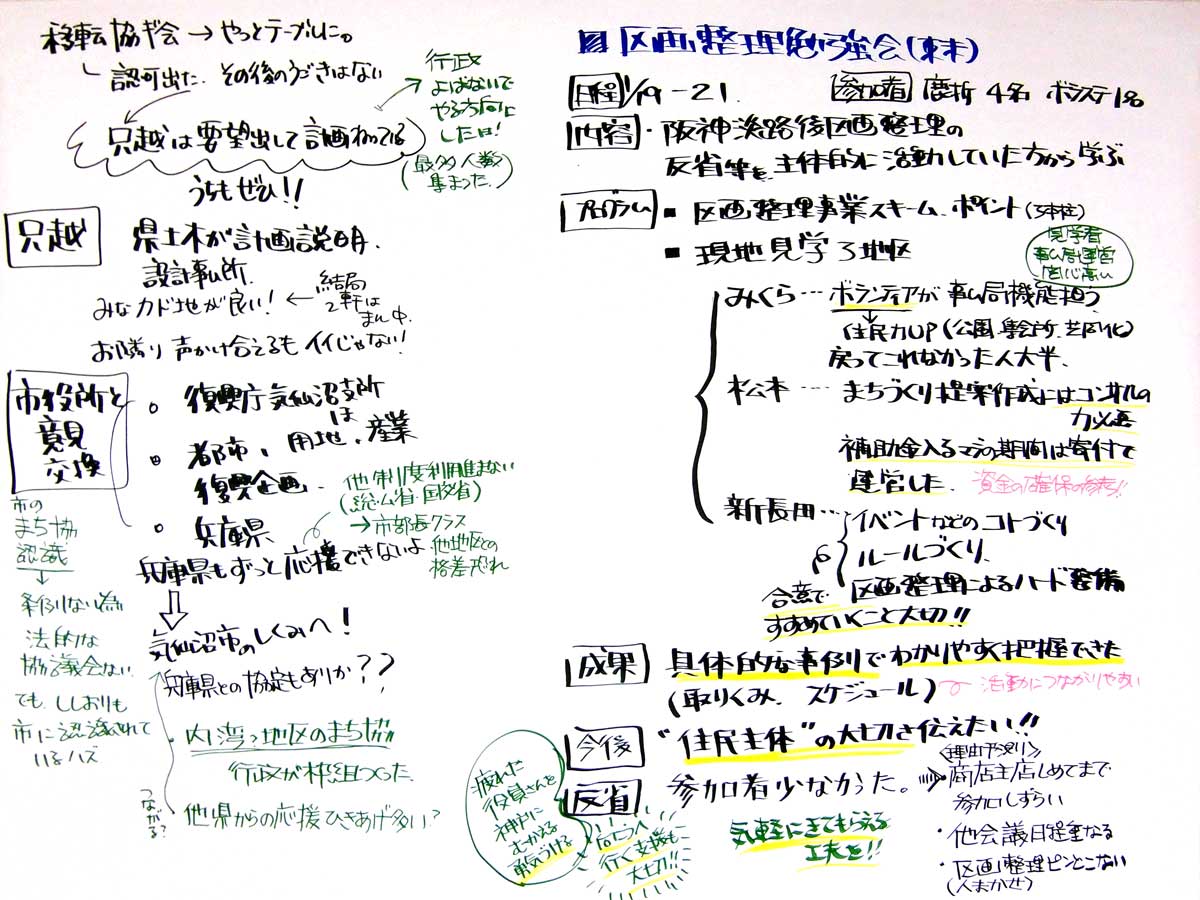 移転協ギ会→やっとテーブルに。
認可出た。その後のうごきはない
只越は要望出して計画ねってる
うちもぜひ!!
行政
よばないで
やる方向に
した日!
(最多人数
集まった)
只越
県土木が計画説明、
設計事ム所。
みなカド地が良い!
←結局
2軒は
まん中。
お隣り声かけ合えるもイイじゃない!
市役所と
意見
交換
復興庁気仙沼支所
は
都市、用地、産業
復興企画、
兵庫県
他制度利用進まない
(総ム省・国交省)
→市部長クラス
他地区との
格差恐れ
兵庫県もずっと応援できないよ
気仙沼市のしくみへ!
兵庫県との協定もありか??
・内湾地区のまち協
行政が枠組つくった
他県からの応援ひきあげ多い?
つながる?
市の
まち協
認識
条例ない為
法的な
協議会ない
でも、ししおりも
市に認識されて
いるハズ
区画整理勉強会(東末)
日程 1/19-21.
参加者 鹿折4名 ボラステ1名
内容・阪神淡路後区画整理の
反省等を主体的に活動していた方から学ぶ
プログラム ■区画整理事業スキーム、ポイント
■現地見学3地区
見学者
事ム局運営
関心高い
みくら…ボランティアが事ム局機能担う
住民力UP(公園、集会所、共同化)
戻ってこれなかった人大半、
松本…まちづくり提案作成にはコンサルの
力必要
補助金入るマデの期間は寄付で
運営した。
資金の確保の参考!!
新長田…イベントなどのコトづくり
ルールづくり、
合意で 区画整理によるハード整備
すすめていくこと大切!!
成果 具体的な事例でわかりやすく把握できた
(取りくみ、スケジュール)
活動につながりやすい
今後 "住民主体"の大切さ伝えたい!!
反省 参加者少なかった。
<理由予測>
商店主店しめてまで
参加しずらい
・他会議日程重なる
・区画整理ピンとこない
(人まかせ)
気軽にきてもらえる
工夫を!!
疲れた
役員さんを
神戸に
むかえる
勇気づける
行く支援も
大切!!